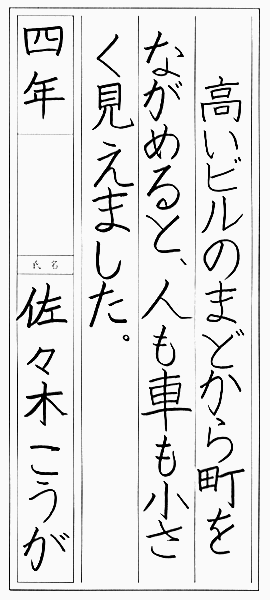 高いビルのまどから町を
ながめると、人も車も小さ
く見えました。
四年
氏名
佐々木こうが